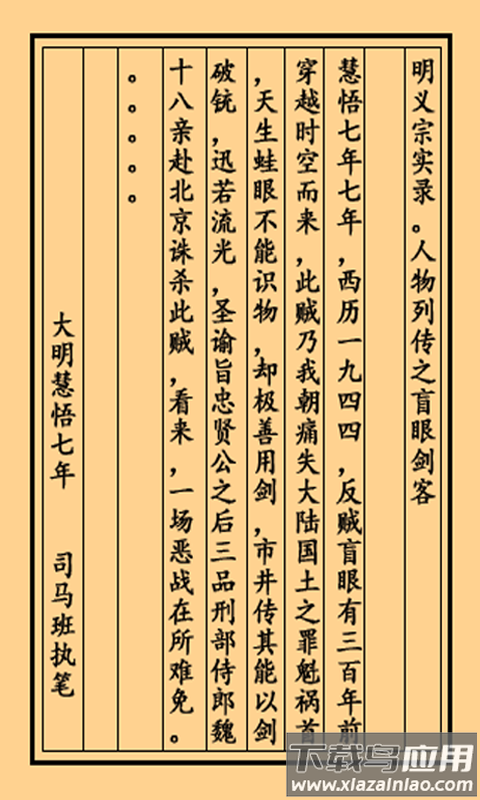 明义宗实录。人物列传之盲眼剑客
慧悟七年七年，西历一九四四，反贼盲眼有三百年前
穿越时空而来，此贼乃我朝痛失大陆国土之罪魁祸首
，天生蛙眼不能识物，却极善用剑，市井传其能以剑
破铳，迅若流光，圣谕旨忠贤公之后三品刑部侍郎魏
十八亲赴北京诛杀此贼，看来，一场恶战在所难免。
。。。。。
大明慧悟七年 司马班执笔
下载鸟应用
www.xlazainlao.com